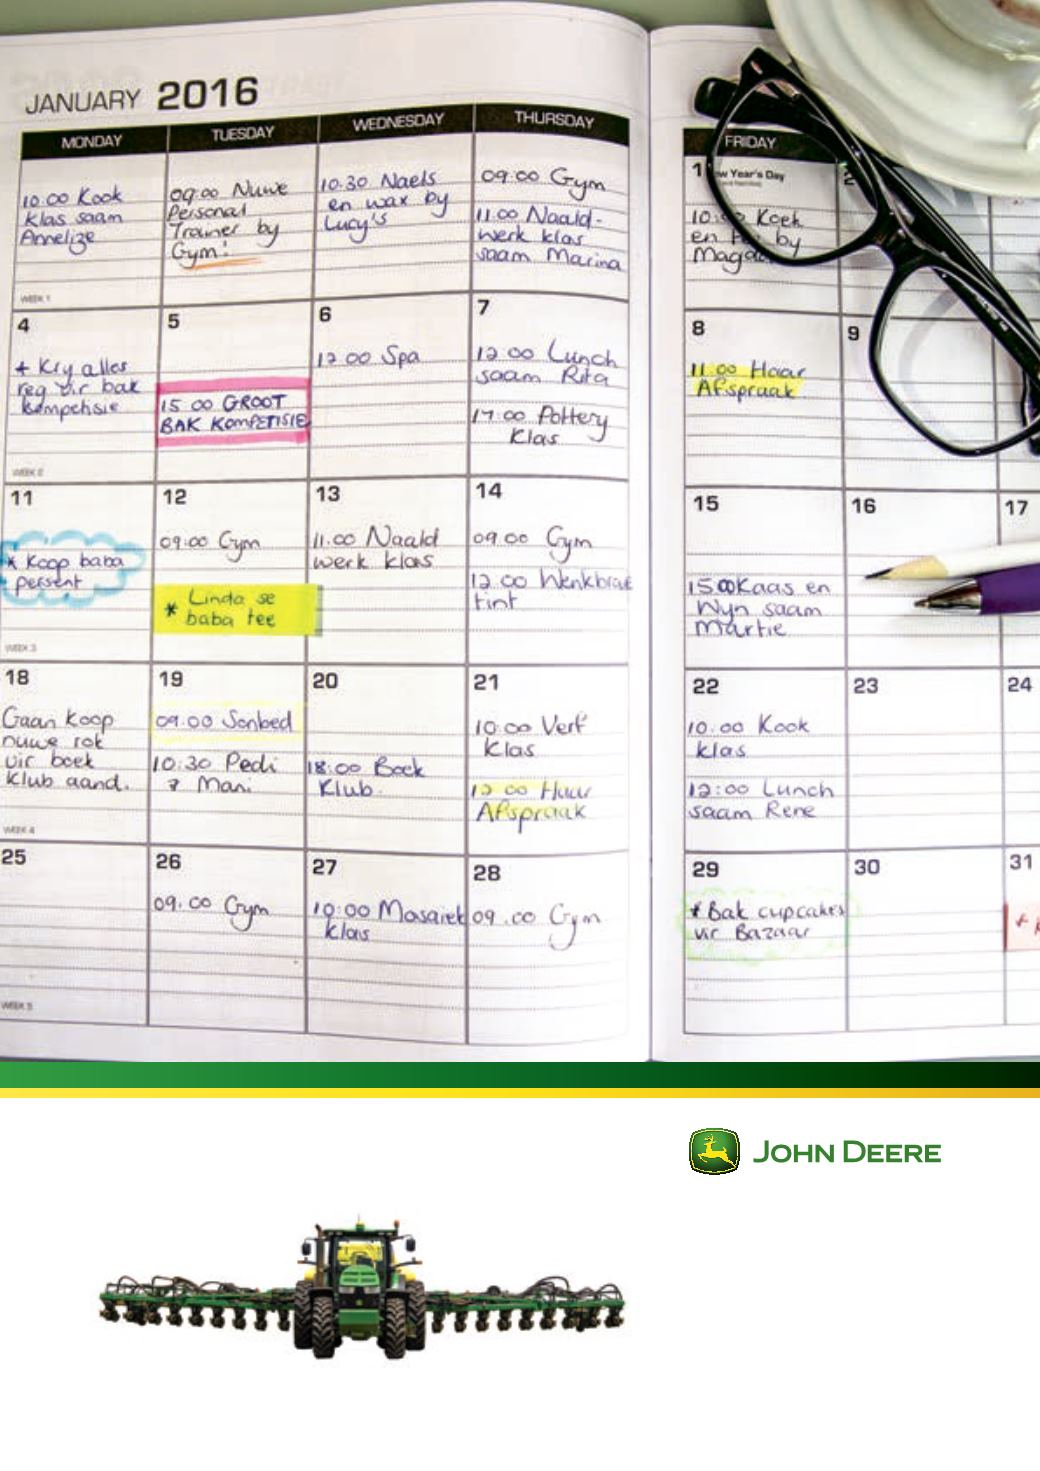 JANUARY 2016
MONDAY
TUESDAY
WEDNESDAY
THURSDAY
FRIDAY
10.00 Kook
klas saam
Annelize
WEEK 1
09:00 Nuwe
Personal
Trainer by
Gym!
10.30 Naels
en wax by
Lucy's
09:00 Gym
11.00 Naald-
werk klas
saam Marina
1
New Year's Day
Koek
en by
2
4
+ Kry alles
reg vir bak
kompetisie
WEEK 2
5
15 00 GROOT
BAK KOMPETISIE
6
12 00 Spa
7
12 00 Lunch
saam Rita
17:00 Pottery
Klas
8
11.00 Haar
Afspraak
9
11
* Koop baba
persent
WEEK 3
12
09:00 Gym
* Linda se
baba tee
13
11.00 Naald
werk klas
14
09.00 Gym
12.00 Wenkbrou
tint
15
15.00 Kaas en
Wyn saam
Martie
16
17
18
Gaan Koop
nuwe rok
vir boek
klub aand.
WEEK 4
19
09.00 Sonbed
10:30 Pedi
& Mani
20
18:00 Boek
Klub.
21
10:00 Verf
Klas
12 00 Haar
Afspraak
22
10.00 Kook
klas
12:00 Lunch
saam Rene
23
24
25
WEEK 5
26
09.00 Gym
27
10:00 Mosaiek
klas
28
09.00 Gym
29
* Bak cupcakes
vir Bazaar
30
31
JOHN DEERE